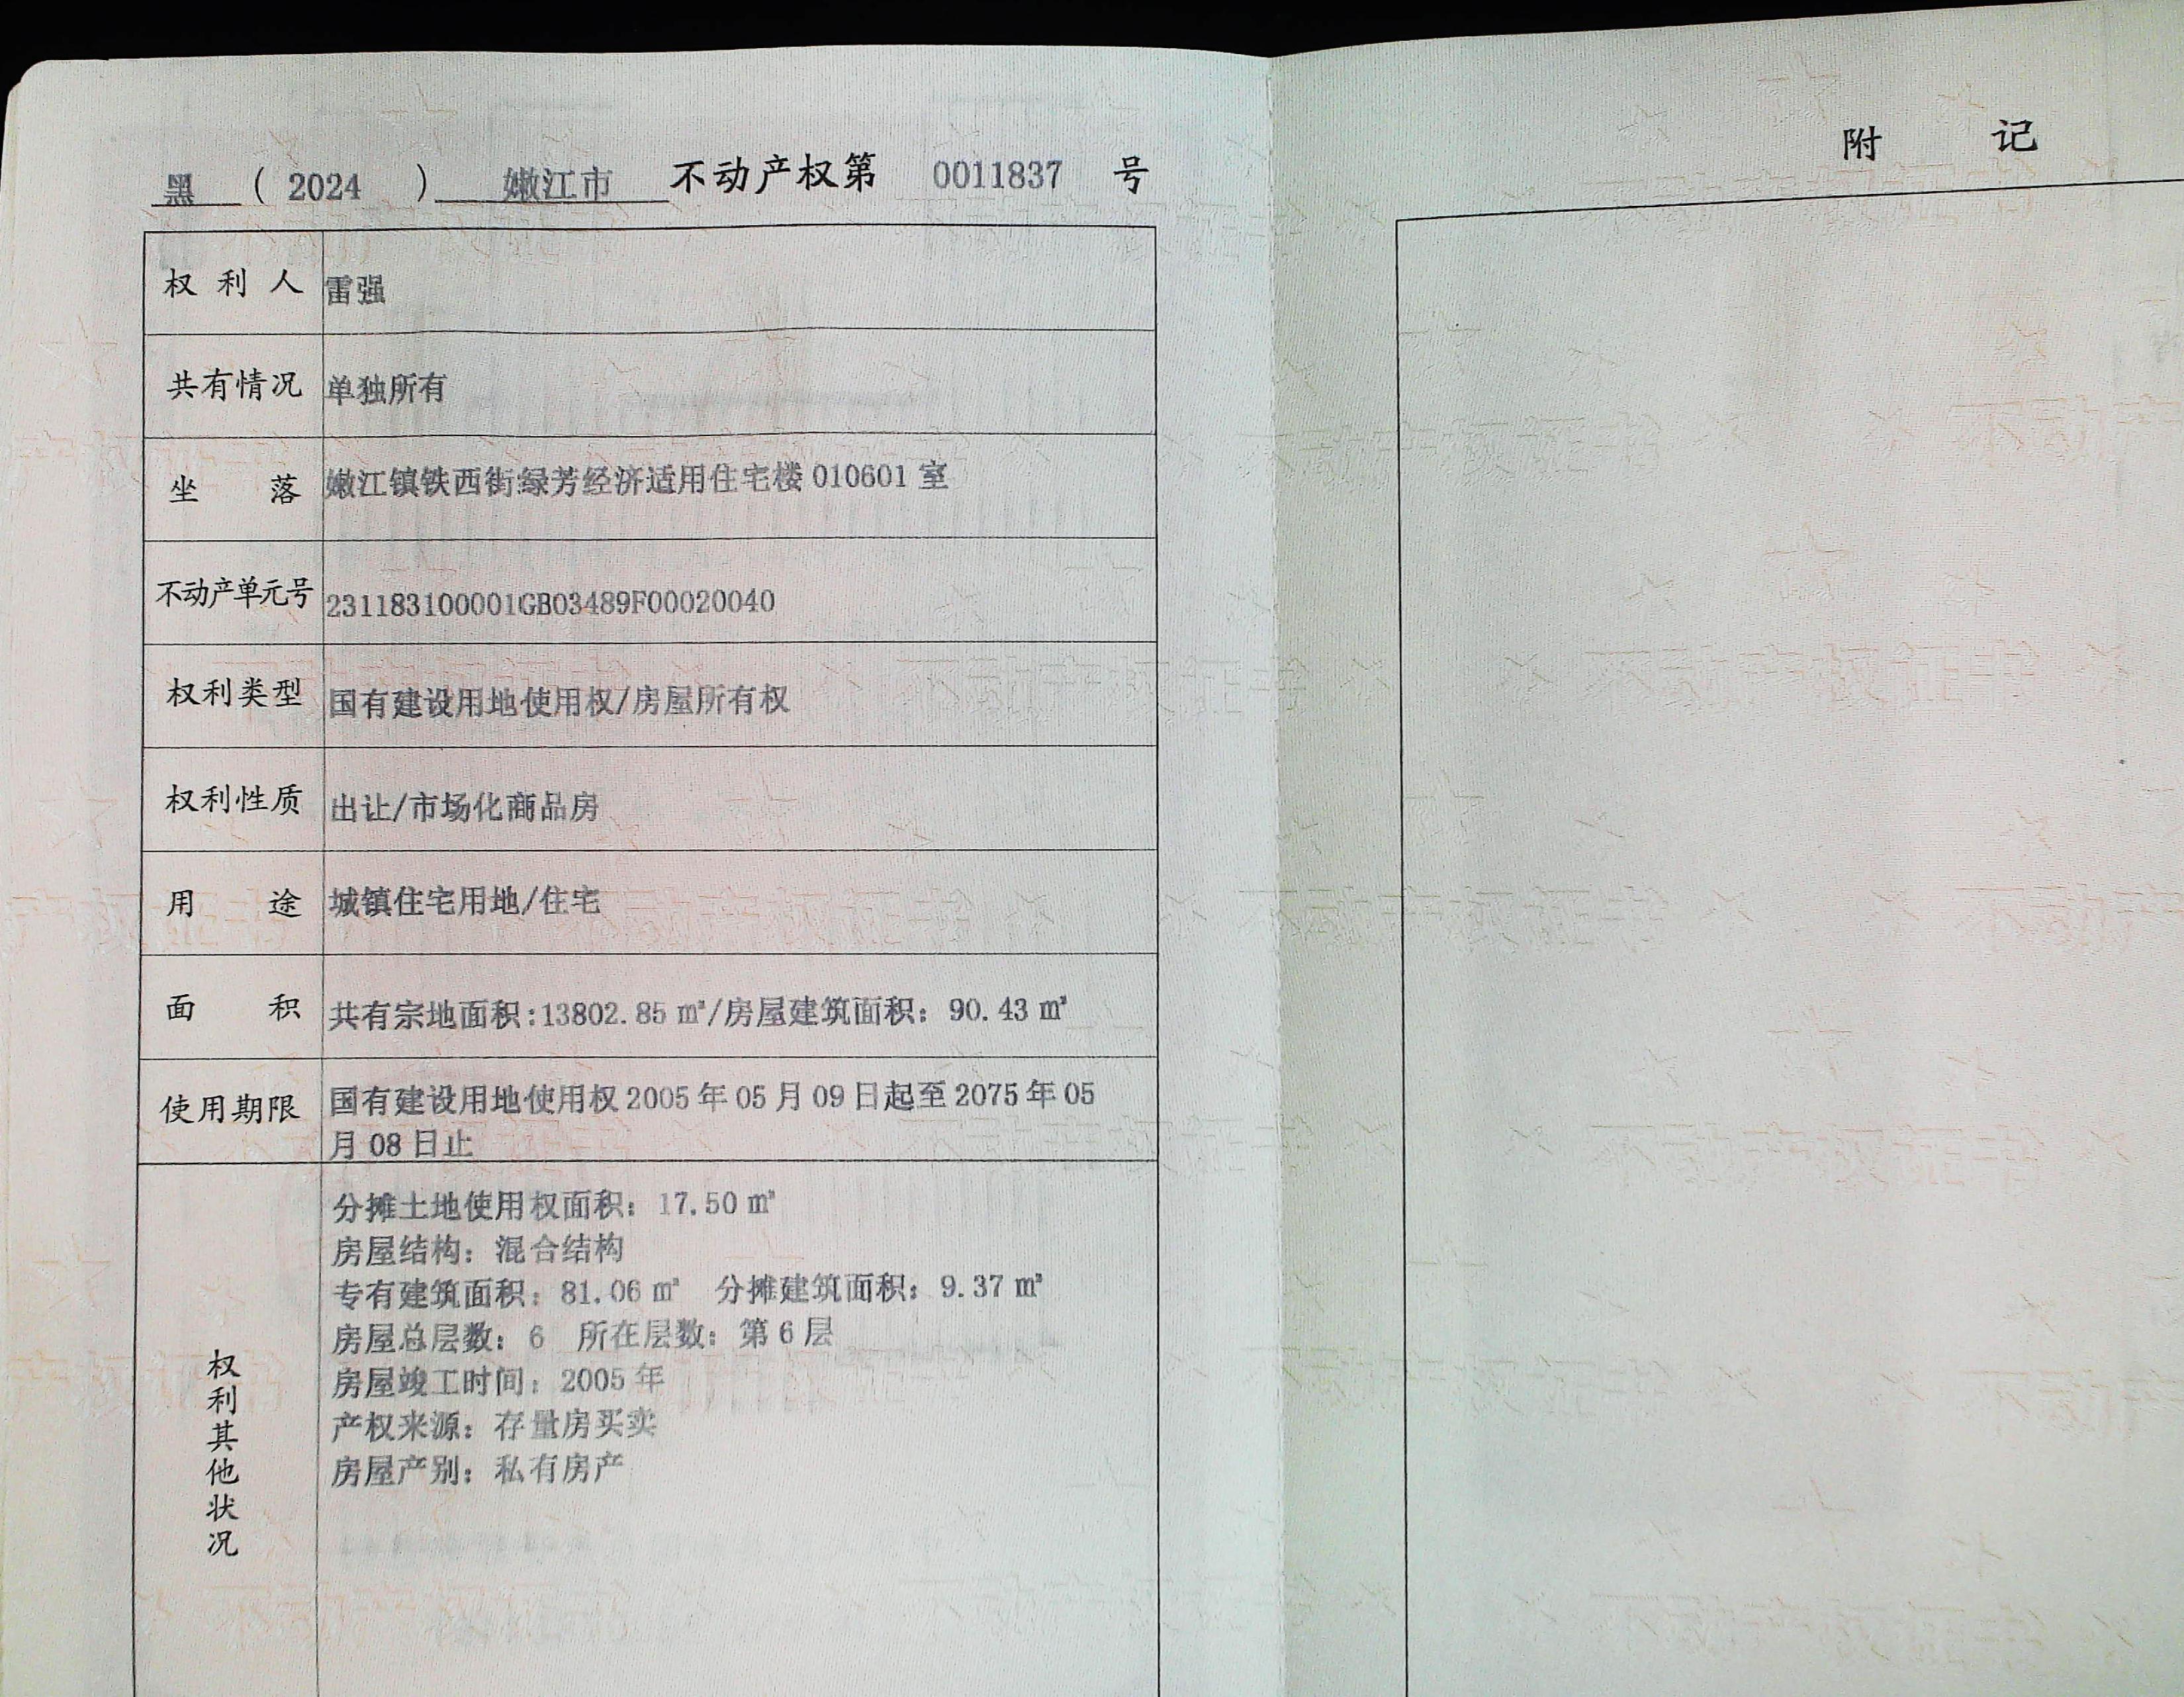 黑（2024）嫩江市不动产权第 0011837 号
权利人 雷强
共有情况 单独所有
坐落 嫩江镇铁西街绿芳经济适用住宅楼 010601 室
不动产单元号 231183100001GB03489F00020040
权利类型 国有建设用地使用权/房屋所有权
权利性质 出让/市场化商品房
用途 城镇住宅用地/住宅
面积 共有宗地面积:13802.85 ㎡/房屋建筑面积：90.43 ㎡
使用期限 国有建设用地使用权 2005 年 05 月 09 日起至 2075 年 05
月 08 日止
权利其他状况
分摊土地使用权面积：17.50 ㎡
房屋结构：混合结构
专有建筑面积：81.06 ㎡ 分摊建筑面积：9.37 ㎡
房屋总层数：6 所在层数：第 6 层
房屋竣工时间：2005 年
产权来源：存量房买卖
房屋产别：私有房产
附记